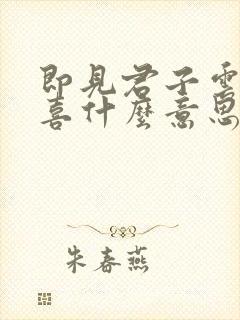 即見君子雲
喜什麼意思
朱春燕